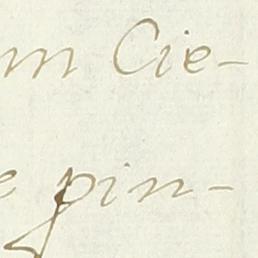 m Cie-
e pin-